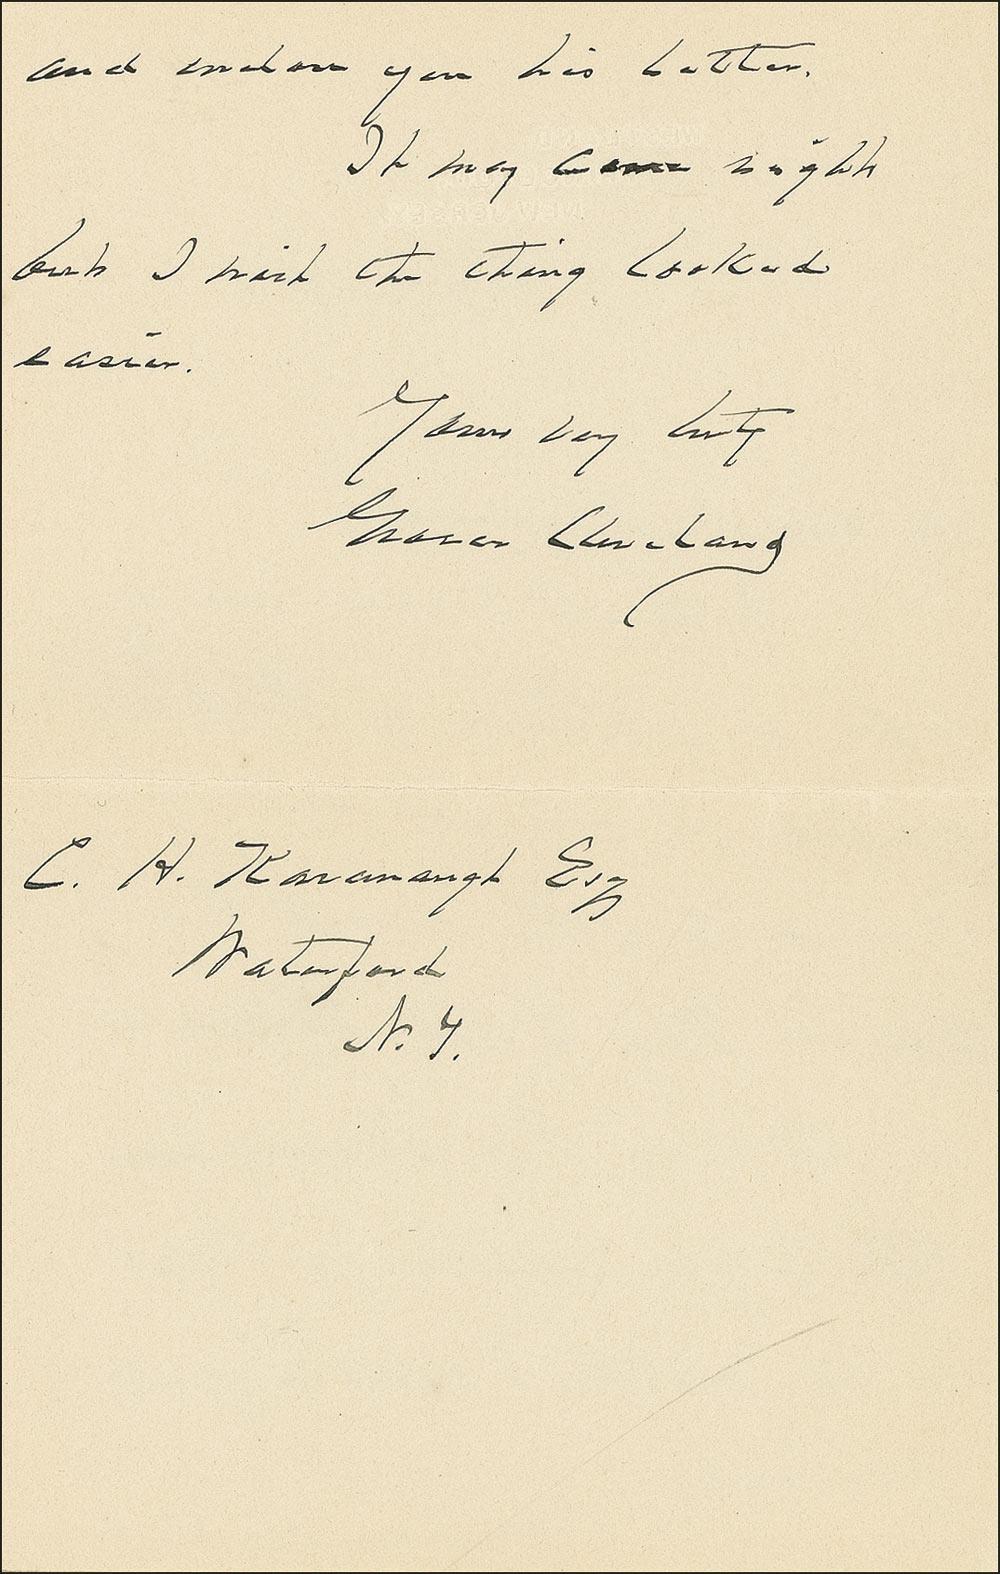 and enclose you his letter.
It may come right
but I wish the thing looked
easier.
Yours very truly
Grover Cleveland
C. H. Kavanaugh Esq
Waterford
N. Y.